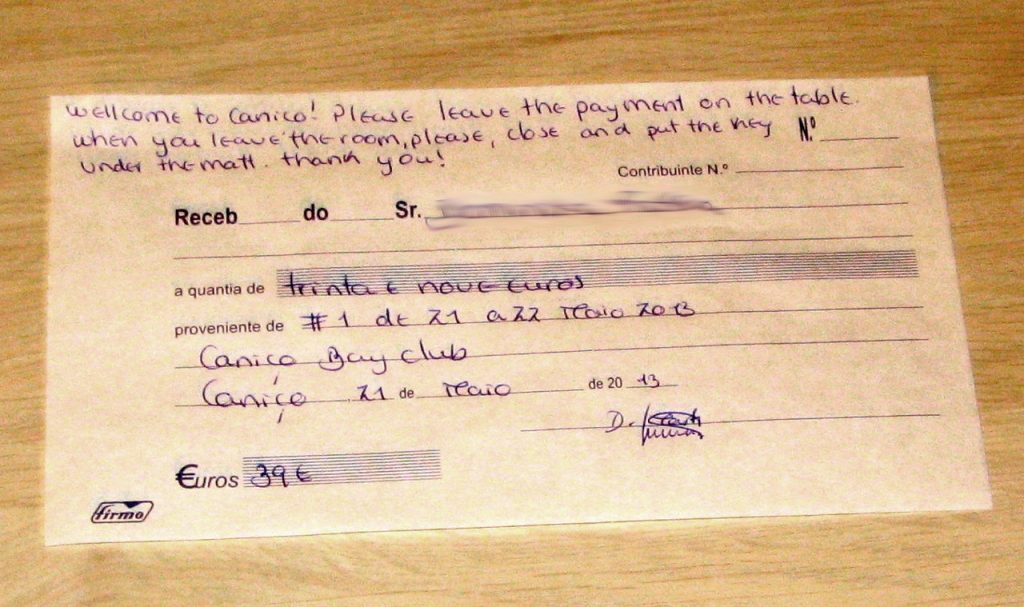 Wellcome to Caniço! Please leave the payment on the table.
when you leave the room, please, close and put the key
under the matt. thank you!
N.º
Contribuinte N.º
Receb do Sr.
a quantia de trinta e nove euros
proveniente de #1 de 21 a 22 Maio 2013
Caniço Bay club
Caniço 21 de Maio de 20 13
D.
€uros 39€
firmo